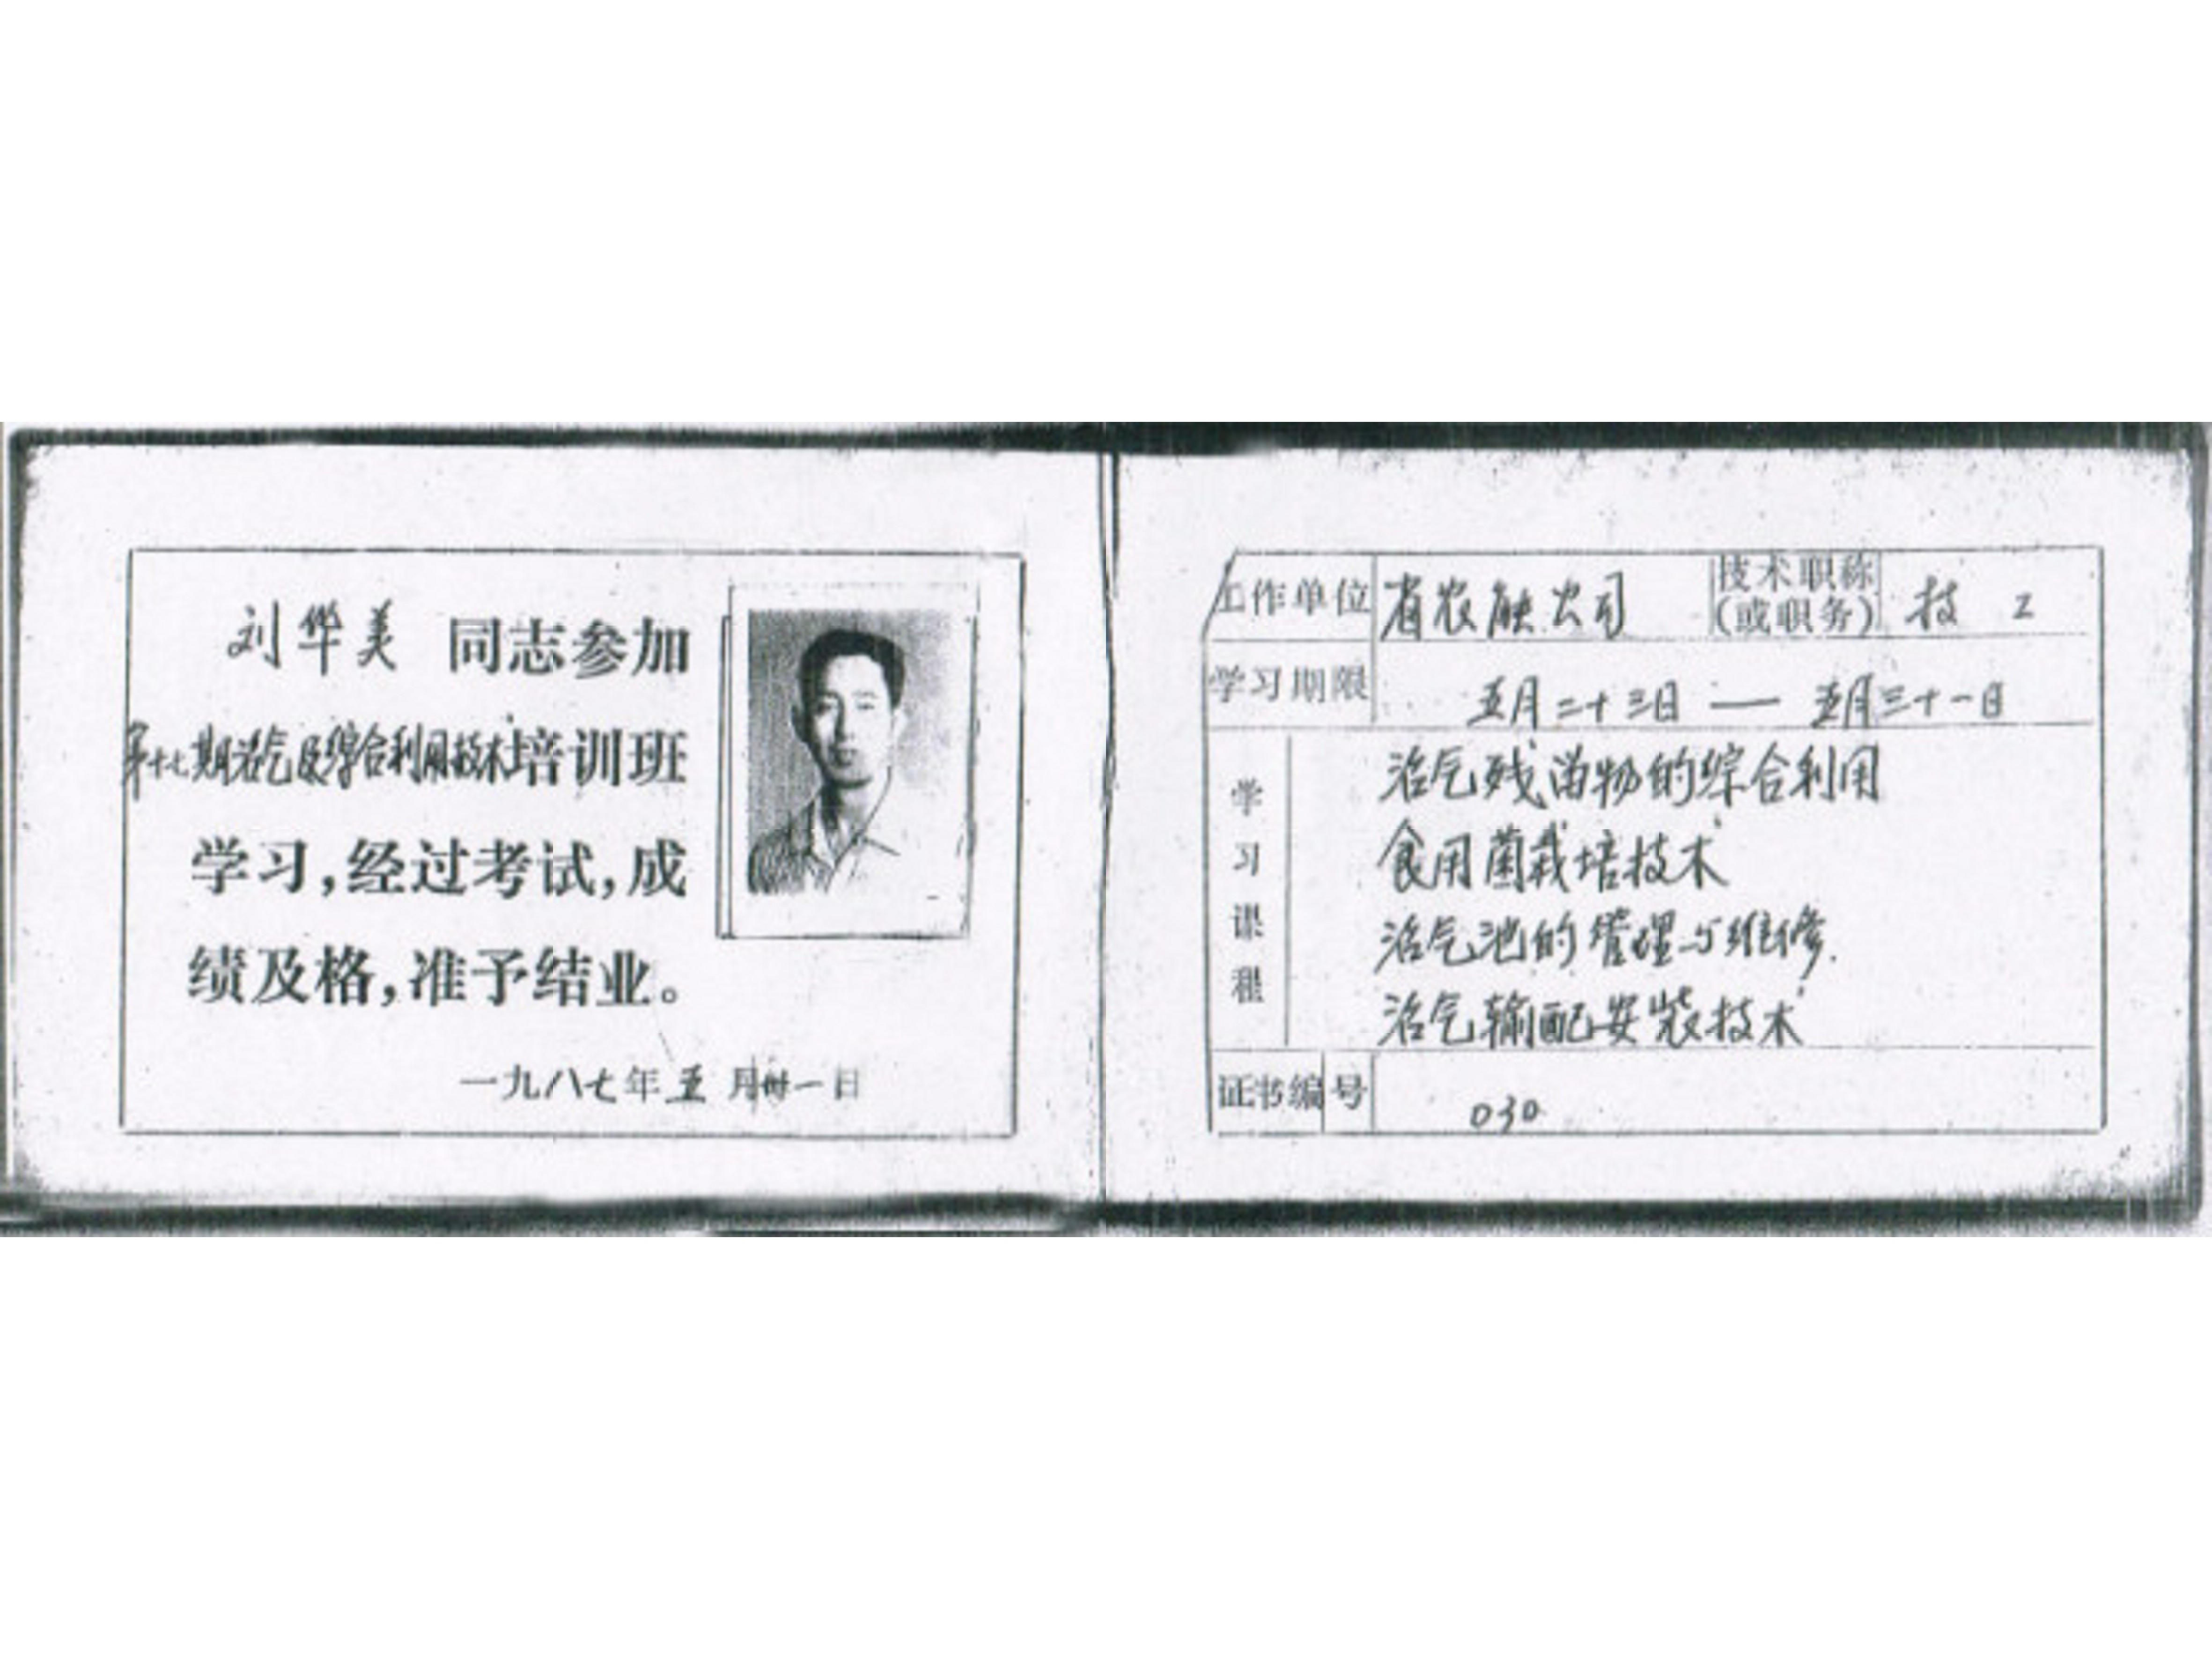 刘华美 同志参加
第十七期沼气及综合利用技术培训班
学习，经过考试，成
绩及格，准予结业。
一九八七年五月卅一日
工作单位 省农能公司 技术职称(或职务) 技工
学习期限 五月二十三日 — 五月三十一日
学习课程
沼气残留物的综合利用
食用菌栽培技术
沼气池的管理与维修.
沼气输配安装技术
证书编号 030